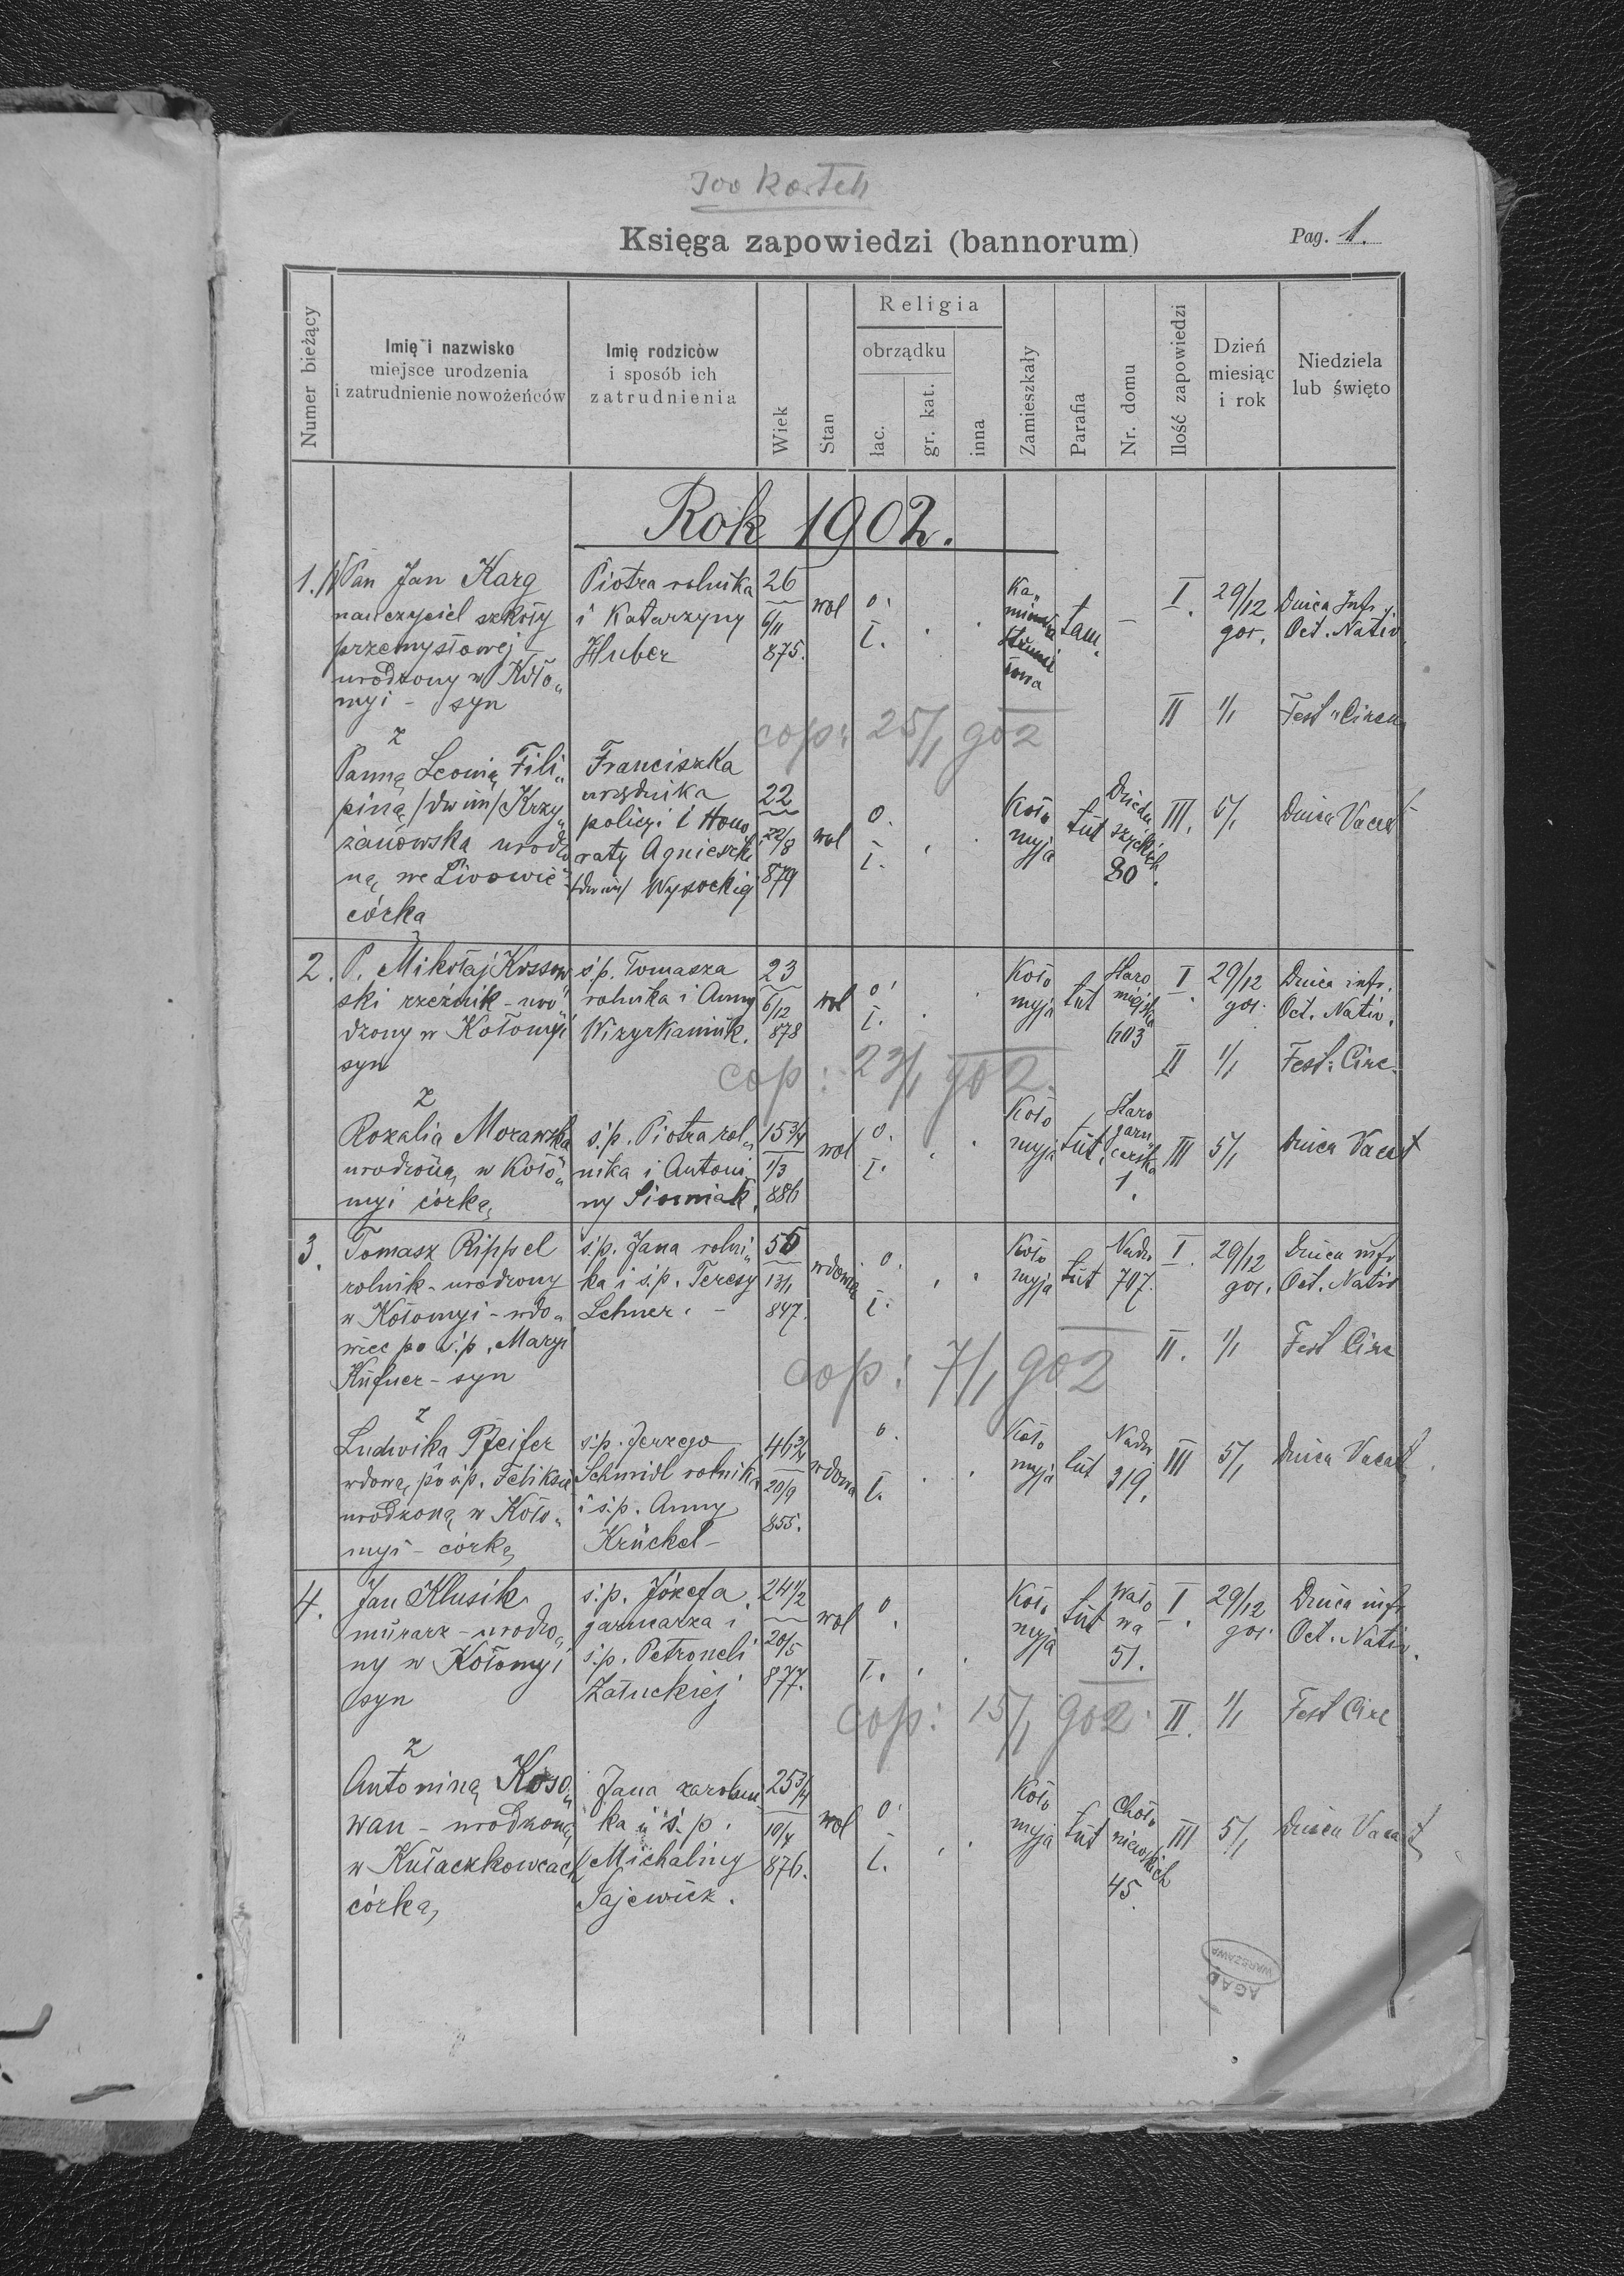 300 kartek
Księga zapowiedzi (bannorum)
Pag. 1.
Numer bieżący
Imię i nazwisko
miejsce urodzenia
i zatrudnienie nowożeńców
Imię rodziców
i sposób ich
zatrudnienia
Wiek
Stan
Religia
obrządku
łac.
gr. kat.
inna
Zamieszkały
Parafia
Nr. domu
Ilość zapowiedzi
Dzień
miesiąc
i rok
Niedziela
lub święto
Rok 1902.
1. Pan Jan Karg
nauczyciel szkoły
przemysłowej
urodzony w Koło„
myi - syn
Piotra rolnika
i Katarzyny
Huber
26
6/11
875.
wol
o.
ł.
Ka„
tam.
–
I.
29/12
901.
Dnica Infr.
Oct. Nativ.
II
1/1
Fest. Circu
cop: 25/1 902
z
Panną Leonią Fili„
piną /dw im/ Krzy„
żanówska urodzo
ną we Lwowie
córką
Franciszka
urzędnika
policyi i Hono„
raty Agnieszki
/dw im/ Wysockiej
22
22/8
879
wol
o.
ł.
Koło
myja
tut
Dziedu
szyckich
20
III.
5/1
Dnica Vacat
2. P. Mikołaj Kossow
ski rzeźnik - uro„
dzony w Kołomyi
syn
ś.p. Tomasza
rolnika i Anny
Wizyrkaniuk.
23
6/12
878
wol
o.
ł.
Koło
myja
tut
Staro
miejska
603
I.
29/12
901.
Dnica infr.
Oct. Nativ.
II
1/1
Fest. Circ.
cop: 23/1 902.
z
Rozalią Morawska
urodzoną w Koło„
myi córką
ś.p. Piotra rol„
nika i Antoni„
ny Simniak.
15 3/4
1/3
886
wol
o.
ł.
Koło
myja
tut.
Staro
garn
carska
1.
III
5/1
Dnica Vacat
3. Tomasz Rippel
rolnik - urodzony
w Kołomyi - wdo„
wiec po ś.p. Maryi
Küfner - syn
ś.p. Jana rolni„
ka i ś.p. Teresy
Lehner. –
55
13/1
847.
o.
ł.
Koło
myja
tut
Nadw
707.
I.
29/12
901.
Dnica infr
Oct. Nativ
II.
1/1
Fest Circ
cop: 7/1 902
z
Ludwiką Pfeifer
wdową po ś.p. Feliksie
urodzoną w Koło„
myi - córką
ś.p. Jerzego
Schmidl rolnika
i ś.p. Anny
Krückel –
46 3/4
20/9
855.
wdowa
o.
ł.
Koło
myja
tut
Nadw
319.
III
5/1
Dnica Vacat
4. Jan Klusik
murarz - urodzo„
ny w Kołomyi
syn
ś.p. Józefa
garncarza i
ś.p. Petroneli
Załuckiej
24 1/2
20/5
877.
wol
o.
ł.
Koło
myja
tut
Wało
wa
51.
I.
29/12
901.
Dnica infr
Oct. Nativ.
II.
1/1
Fest Circ
cop: 15/1 902.
z
Antoniną Koso„
wan - urodzoną
w Kułaczkowcach
córką
Jana zarobni
ka i ś.p.
Michaliny
Sajewicz.
25 3/4
10/4
876.
wol
o.
ł.
Koło
myja
tut
Choło
niewskich
45
III
5/1
Dnica Vacat
AGAD
WARSZAWA